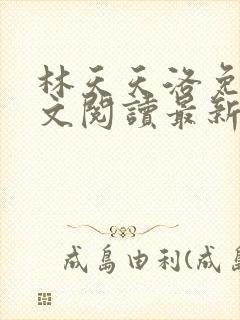 林天天洛免
文閱讀最新
成島由利(成島